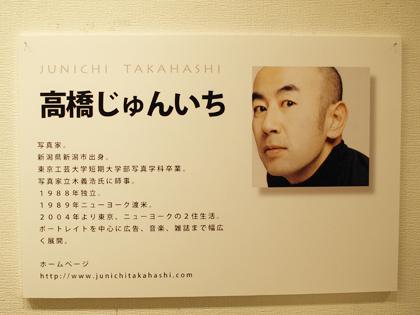 JUNICHI TAKAHASHI
高橋じゅんいち
写真家。
新潟県新潟市出身。
東京工芸大学短期大学部写真学科卒業。
写真家立木義浩氏に師事。
1988年独立。
1989年ニューヨーク渡米。
2004年より東京、ニューヨークの2住生活。
ポートレイトを中心に広告、音楽、雑誌まで幅広
く展開。
ホームページ
http://www.junichitakahashi.com